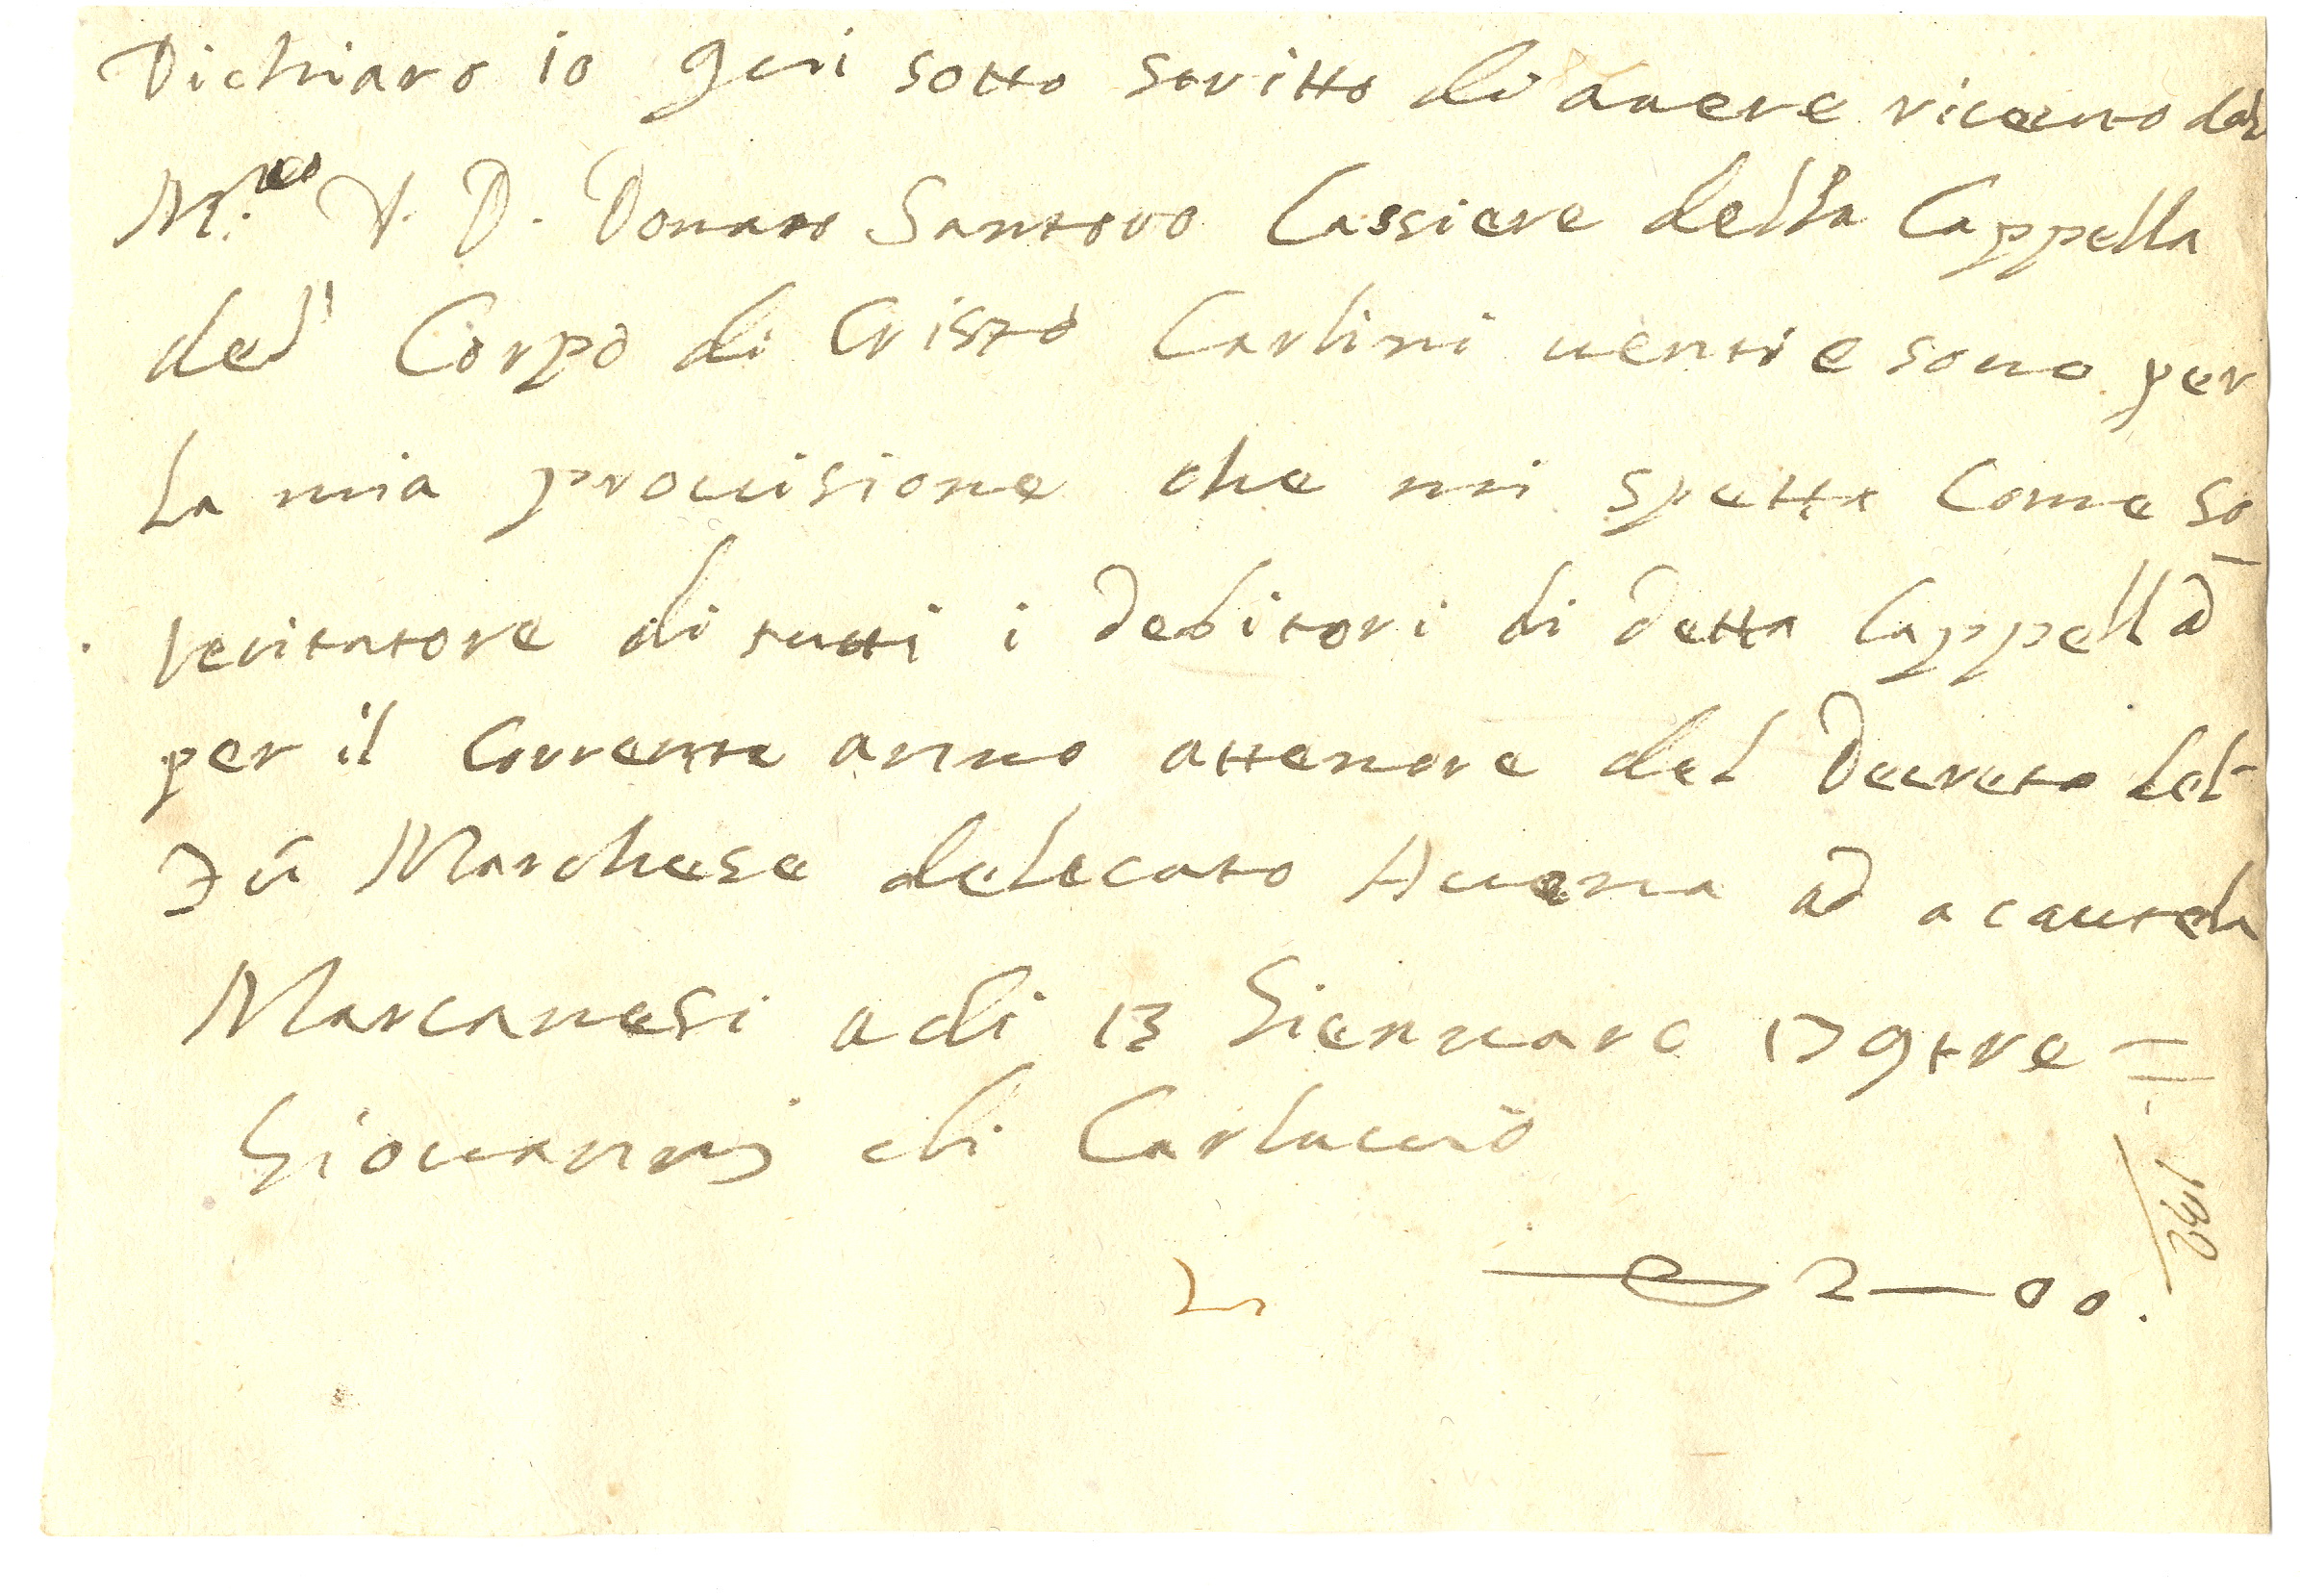 Dichiaro io qui sotto scritto di auere riceuto dal
M.co V. D. Donato Santoro Cassiere della Cappella
del Corpo di Cristo Carlini uenti e sono per
La mia prouisione che mi spetta Come so
lecitatore di tutti i debitori di detta Cappella
per il Corrente anno attenore del Decreto del
Fù Marchese delecato Auena ad a cautela
Marcanesi adi 13 Giennaro 179tre =
Giouanni di Carluccio
2—00.
132